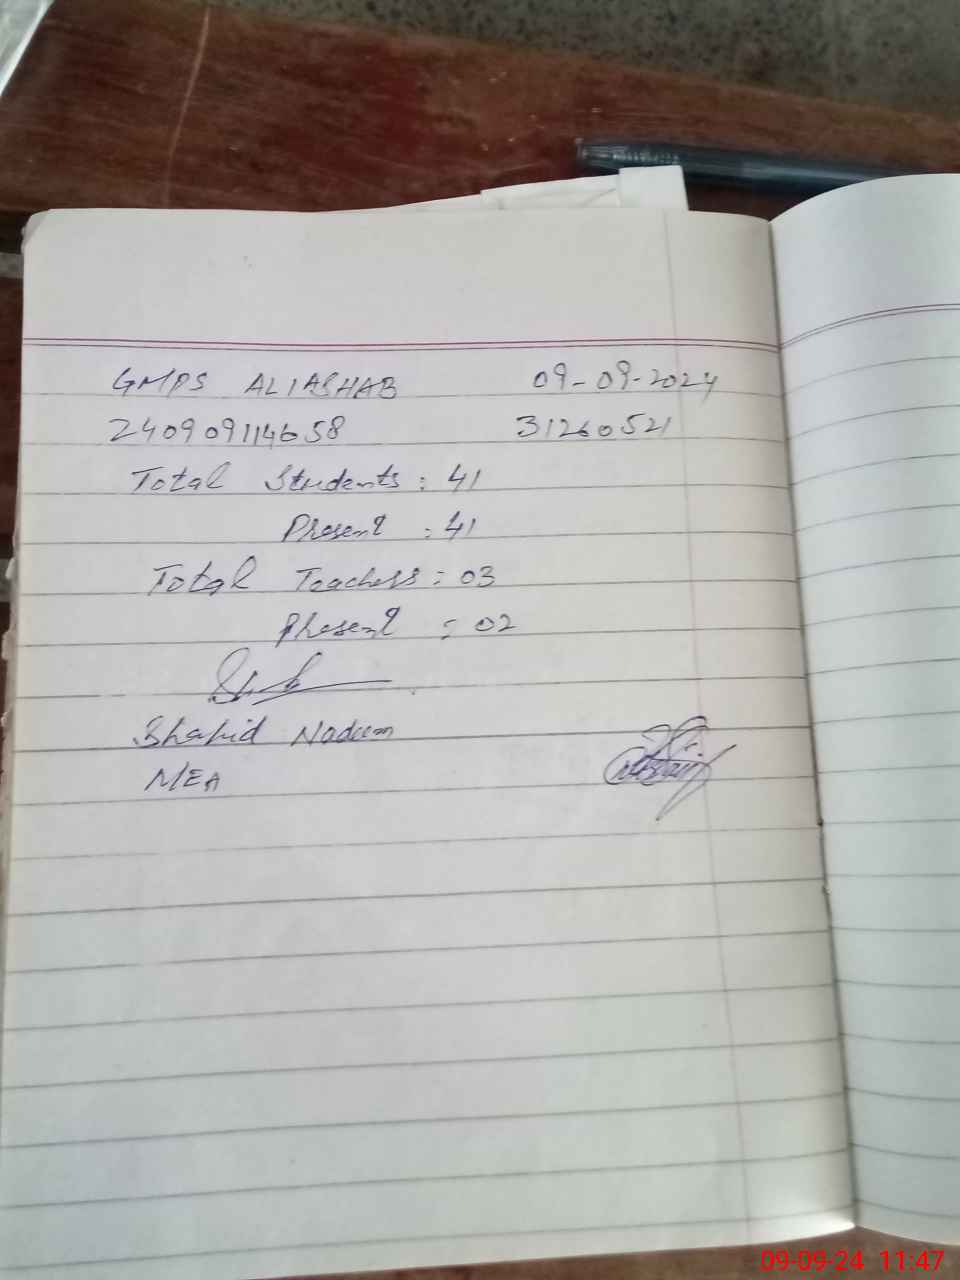 GMPS ALIASHAB 09-09-2024
240909114658 31260521
Total Students : 41
Present : 41
Total Teachers : 03
Present : 02
Shahid Nadeem
MEA
09-09-24 11:47